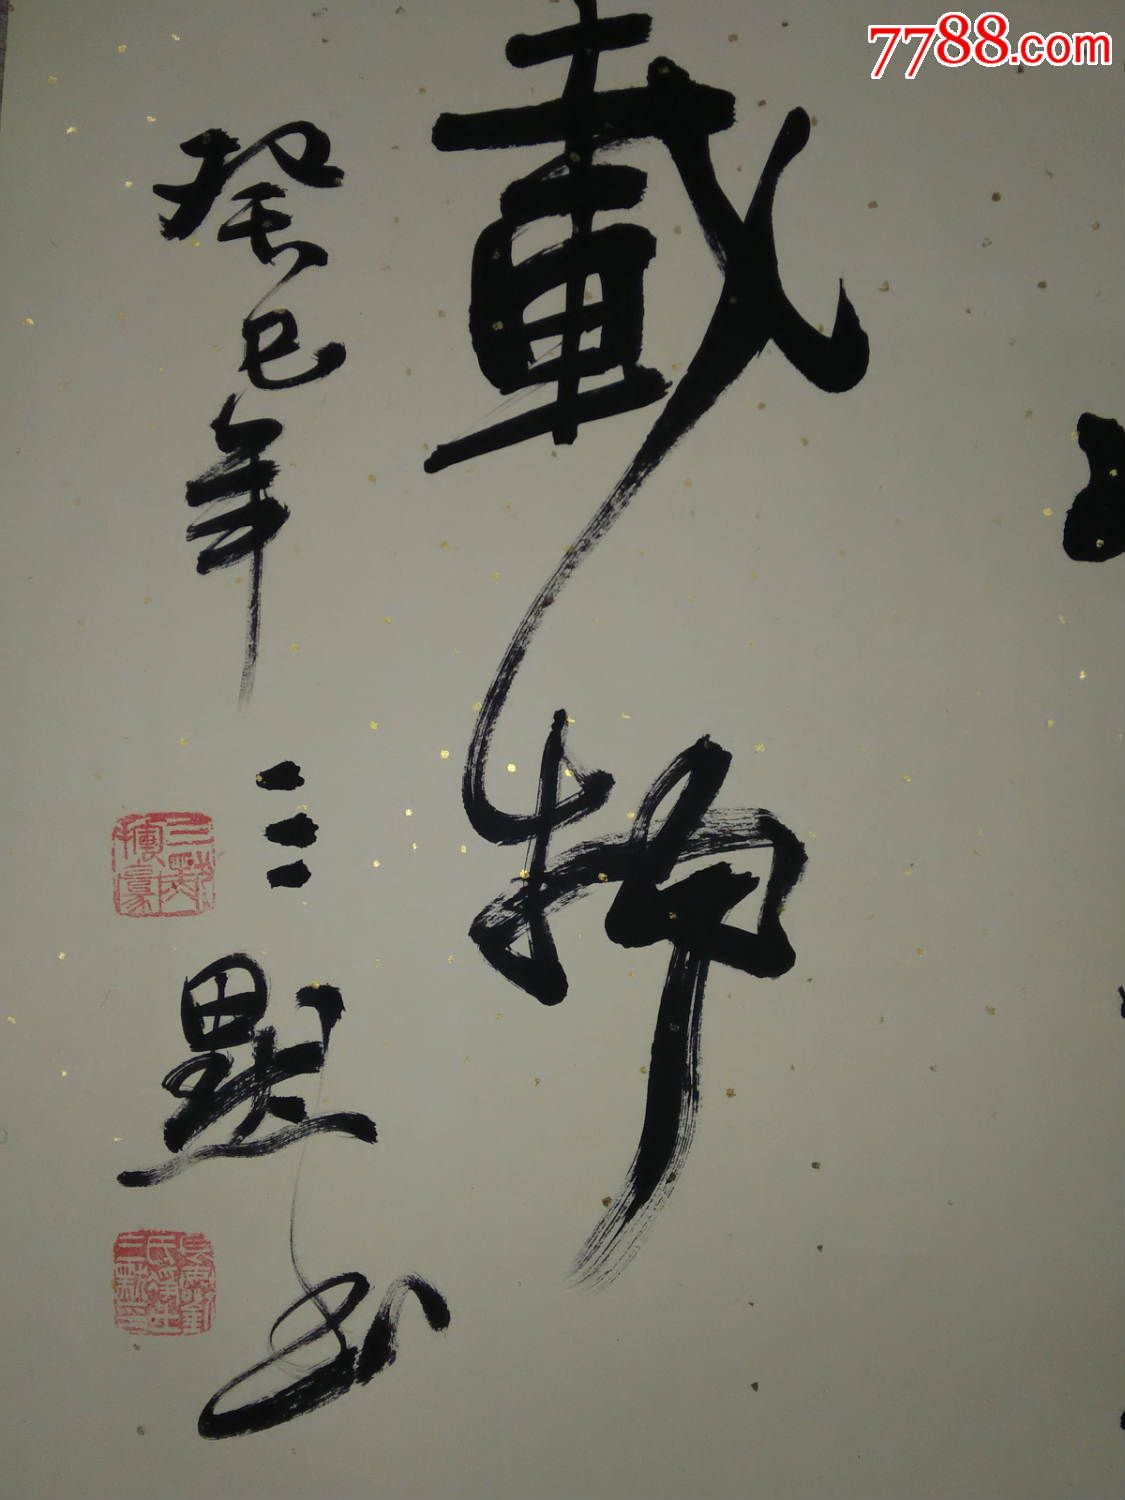 7788.com
載物
癸巳年三默书